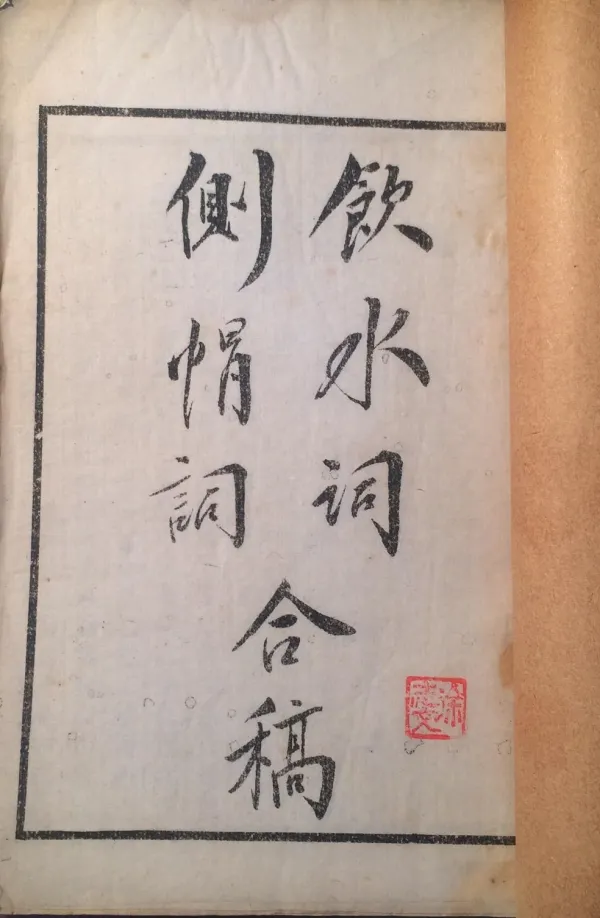 飲水詞
側帽詞
合稿